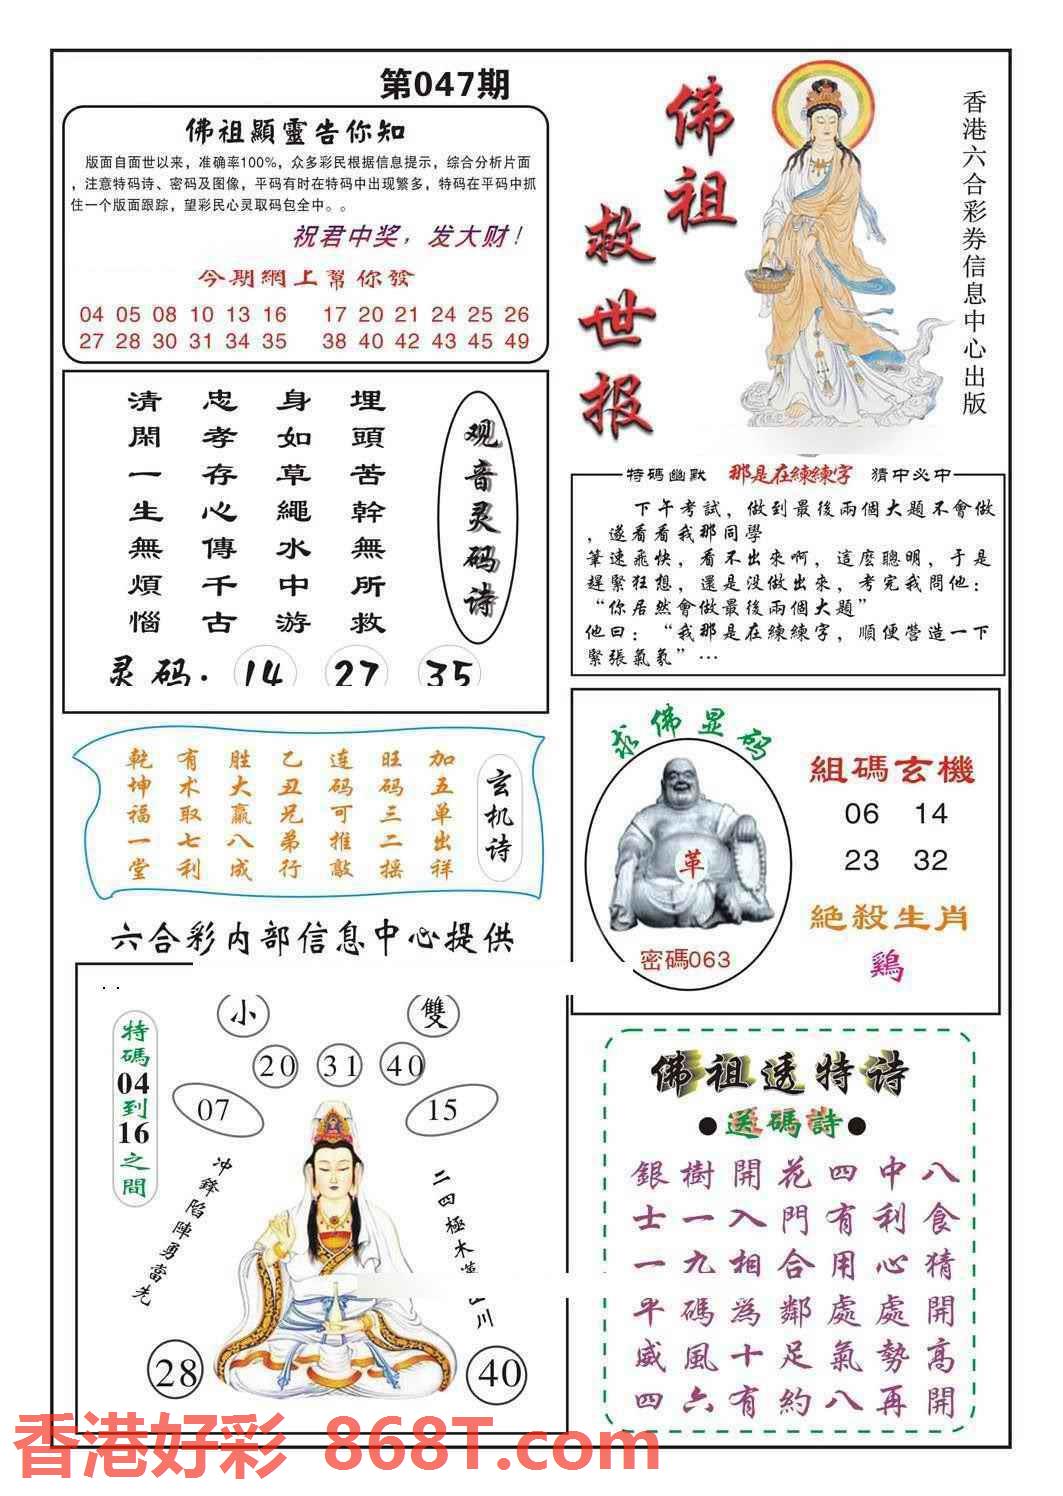 第047期
佛祖顯靈告你知
版面自面世以来，准确率100%，众多彩民根据信息提示，综合分析片面
，注意特码诗、密码及图像，平码有时在特码中出现繁多，特码在平码中抓
住一个版面跟踪，望彩民心灵取码包全中。。
祝君中奖，发大财！
今期網上幫你發
04 05 08 10 13 16 17 20 21 24 25 26
27 28 30 31 34 35 38 40 42 43 45 49
佛祖
救世报
香港六合彩券信息中心出版
观音灵码诗
埋頭苦幹無所救
身如草繩水中游
忠孝存心傳千古
清閑一生無煩惱
灵码. 14 27 35
特码幽默 那是在練練字 猜中必中
下午考試，做到最後兩個大題不會做
，遂看看我那同學
筆速飛快，看不出來啊，這麼聰明，于是
趕緊狂想，還是没做出來，考完我問他：
“你居然會做最後兩個大題”
他曰：“我那是在練練字，順便營造一下
緊張氣氛”…
玄机诗
加五单出祥
旺码三二摇
连码可推敲
乙丑兄弟行
胜大赢八成
有术取七利
乾坤福一堂
求佛显码
革
密碼063
組碼玄機
06 14
23 32
絕殺生肖
鷄
六合彩内部信息中心提供
. .
特碼04到16之間
小 雙
20 31 40
07 15
冲鋒陷陣勇當先
二四極木
川
28 40
佛祖透特诗
●送碼詩●
銀樹開花四中八
士一入門有利食
一九相合用心猜
平碼為鄰處處開
威風十足氣勢高
四六有約八再開
香港好彩 868T.com